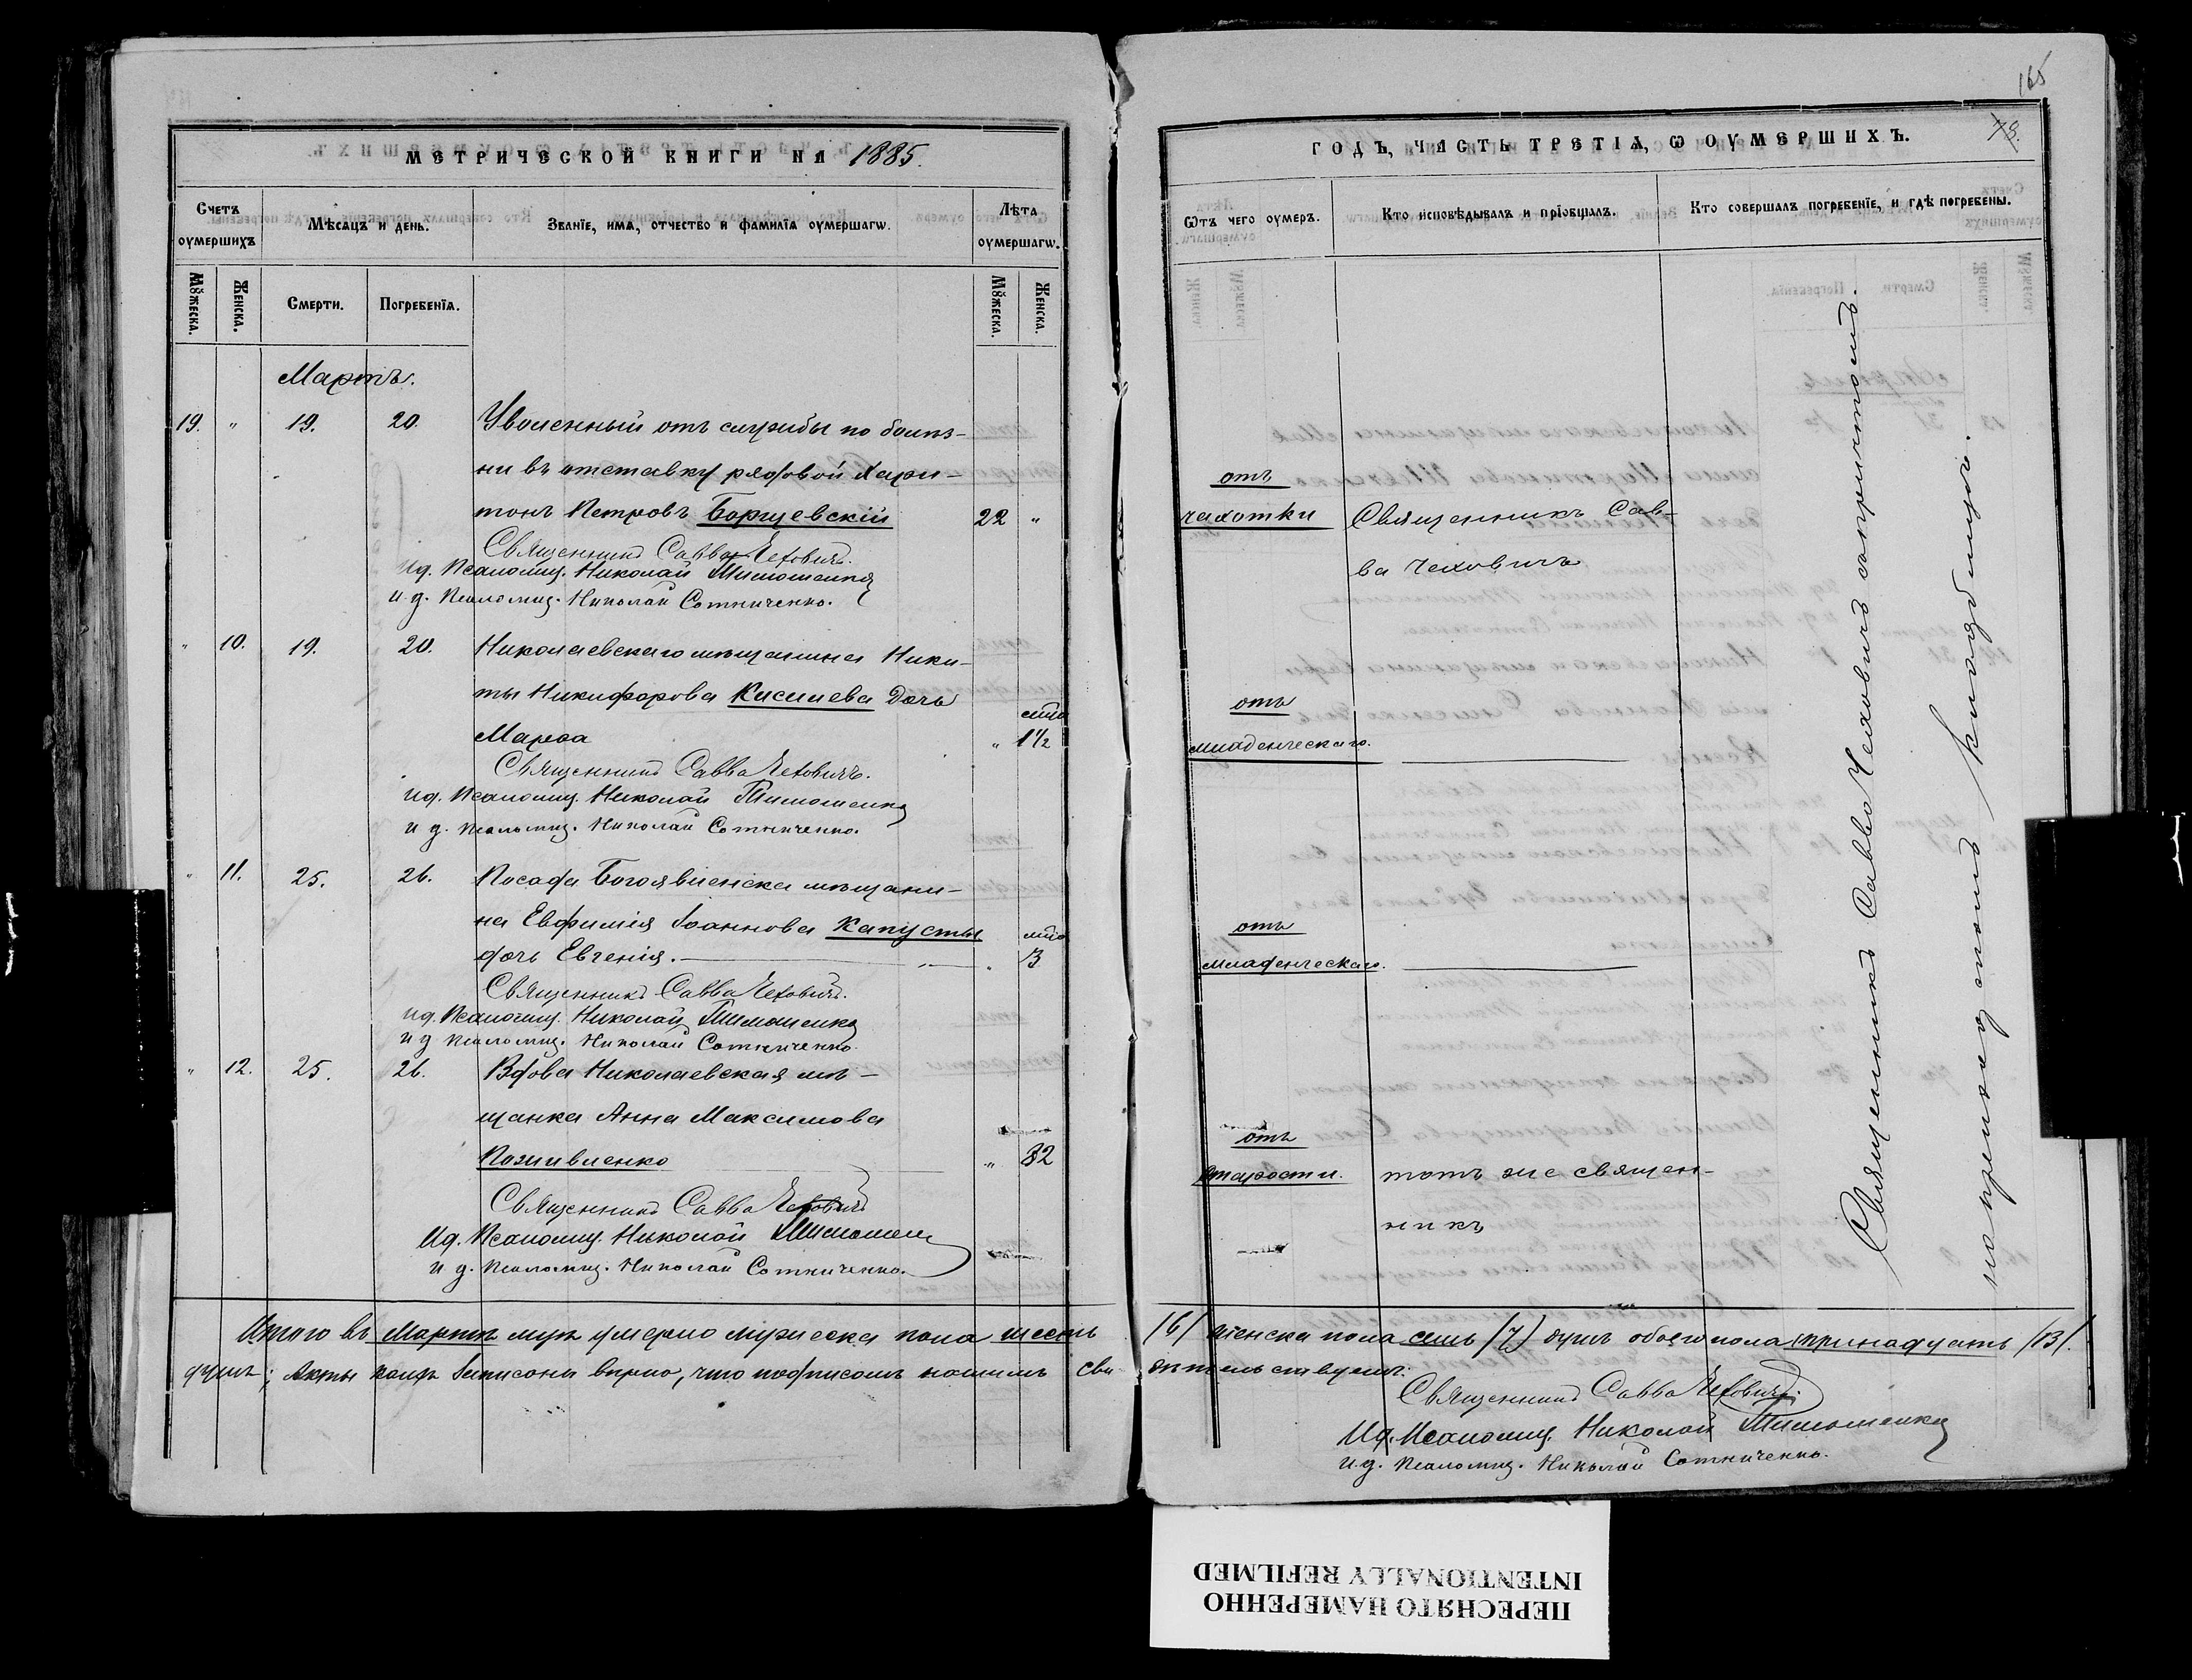 165
МЕТРИЧЕСКОЙ КНИГИ НА 1885.
Счетъ оумершихъ
Мѣсяцъ и день.
Званіе, имя, отчество и фамилія оумершагѡ.
Лѣта оумершагѡ.
Мꙋжеска.
Женска.
Смерти.
Погребенія.
Мꙋжеска.
Женска.
Мартъ.
19. " 19. 20. Уволенный отъ службы по болѣз-
ни въ отставку рядовой Хари-
тонъ Петровъ Борщевскій 22 "
Священникъ Савва Чеховичъ.
И.д. Псаломщ. Николай Тимошенко
и.д. Псаломщ. Николай Сотниченко.
" 10. 19. 20. Николаевскаго мѣщанина Ники-
ты Никифорова Киселева дочь
Марѳа " 1½
Священникъ Савва Чеховичъ.
И.д. Псаломщ. Николай Тимошенко
и д. Псаломщ. Николай Сотниченко.
" 11. 25. 26. Посада Богоявленска мѣщани-
на Евфимія Іоаннова Капусты
дочь Евгенія. " 3
Священникъ Савва Чеховичъ.
И.д. Псаломщ. Николай Тимошенко
и д Псаломщ. Николай Сотниченко.
" 12. 25. 26. Вдова Николаевская мѣ-
щанка Анна Максимова
Поживленко " 82
Священникъ Савва Чеховичъ
И.д. Псаломщ. Николай Тимошенко
и д. Псаломщ. Николай Сотниченко.
Итого въ Мартѣ умерло мужеска пола шесть
душъ; Акты записаны вѣрно, что подписомъ нашимъ сви-
ГОДЪ, ЧАСТЬ ТРЕТІЯ, Ѡ ОУМЕРШИХЪ.
78.
Ѿтъ чего оумеръ.
Кто исповѣдывалъ и пріобщалъ.
Кто совершалъ погребеніе, и гдѣ погребены.
отъ
чахотки Священникъ Сав-
ва Чеховичъ
отъ
младенческаго.
отъ
младенческаго.
отъ
старости. тотъ же священ-
никъ
Священникъ Савва Чеховичъ съ причтомъ.
на приходскомъ кладбищѣ.
/6/ женска пола семь /7/ душъ обоего пола тринадцать /13/.
дѣтельствуемъ:
Священникъ Савва Чеховичъ.
И.д. Псаломщ. Николай Тимошенко
и.д. Псаломщ. Николай Сотниченко.
ПЕРЕСНЯТО НАМЕРЕННО
INTENTIONALLY REFILMED